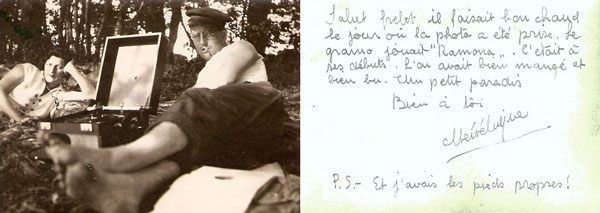 Salut frelot il faisait bon chaud
le jour où la photo a été prise. Le
gramo jouait "Ramona„. C'était à
ses débuts. L'on avait bien mangé et
bien bu. Un petit paradis
Bien à toi
P.S.- Et j'avais les pieds propres!